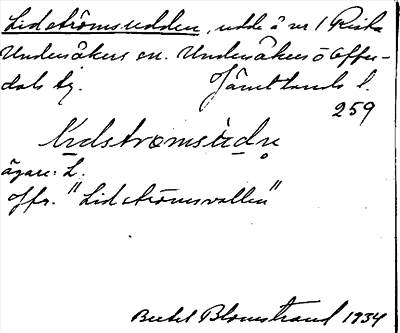 Lidströmsudden, udde å nr 1 Rista
Undersåkers sn. Undersåkers o Offer-
dals tg. Jämtlands l.
259
ägare: L.
offr. "Lidströmsvallen"
Bertil Blomstrand 1934